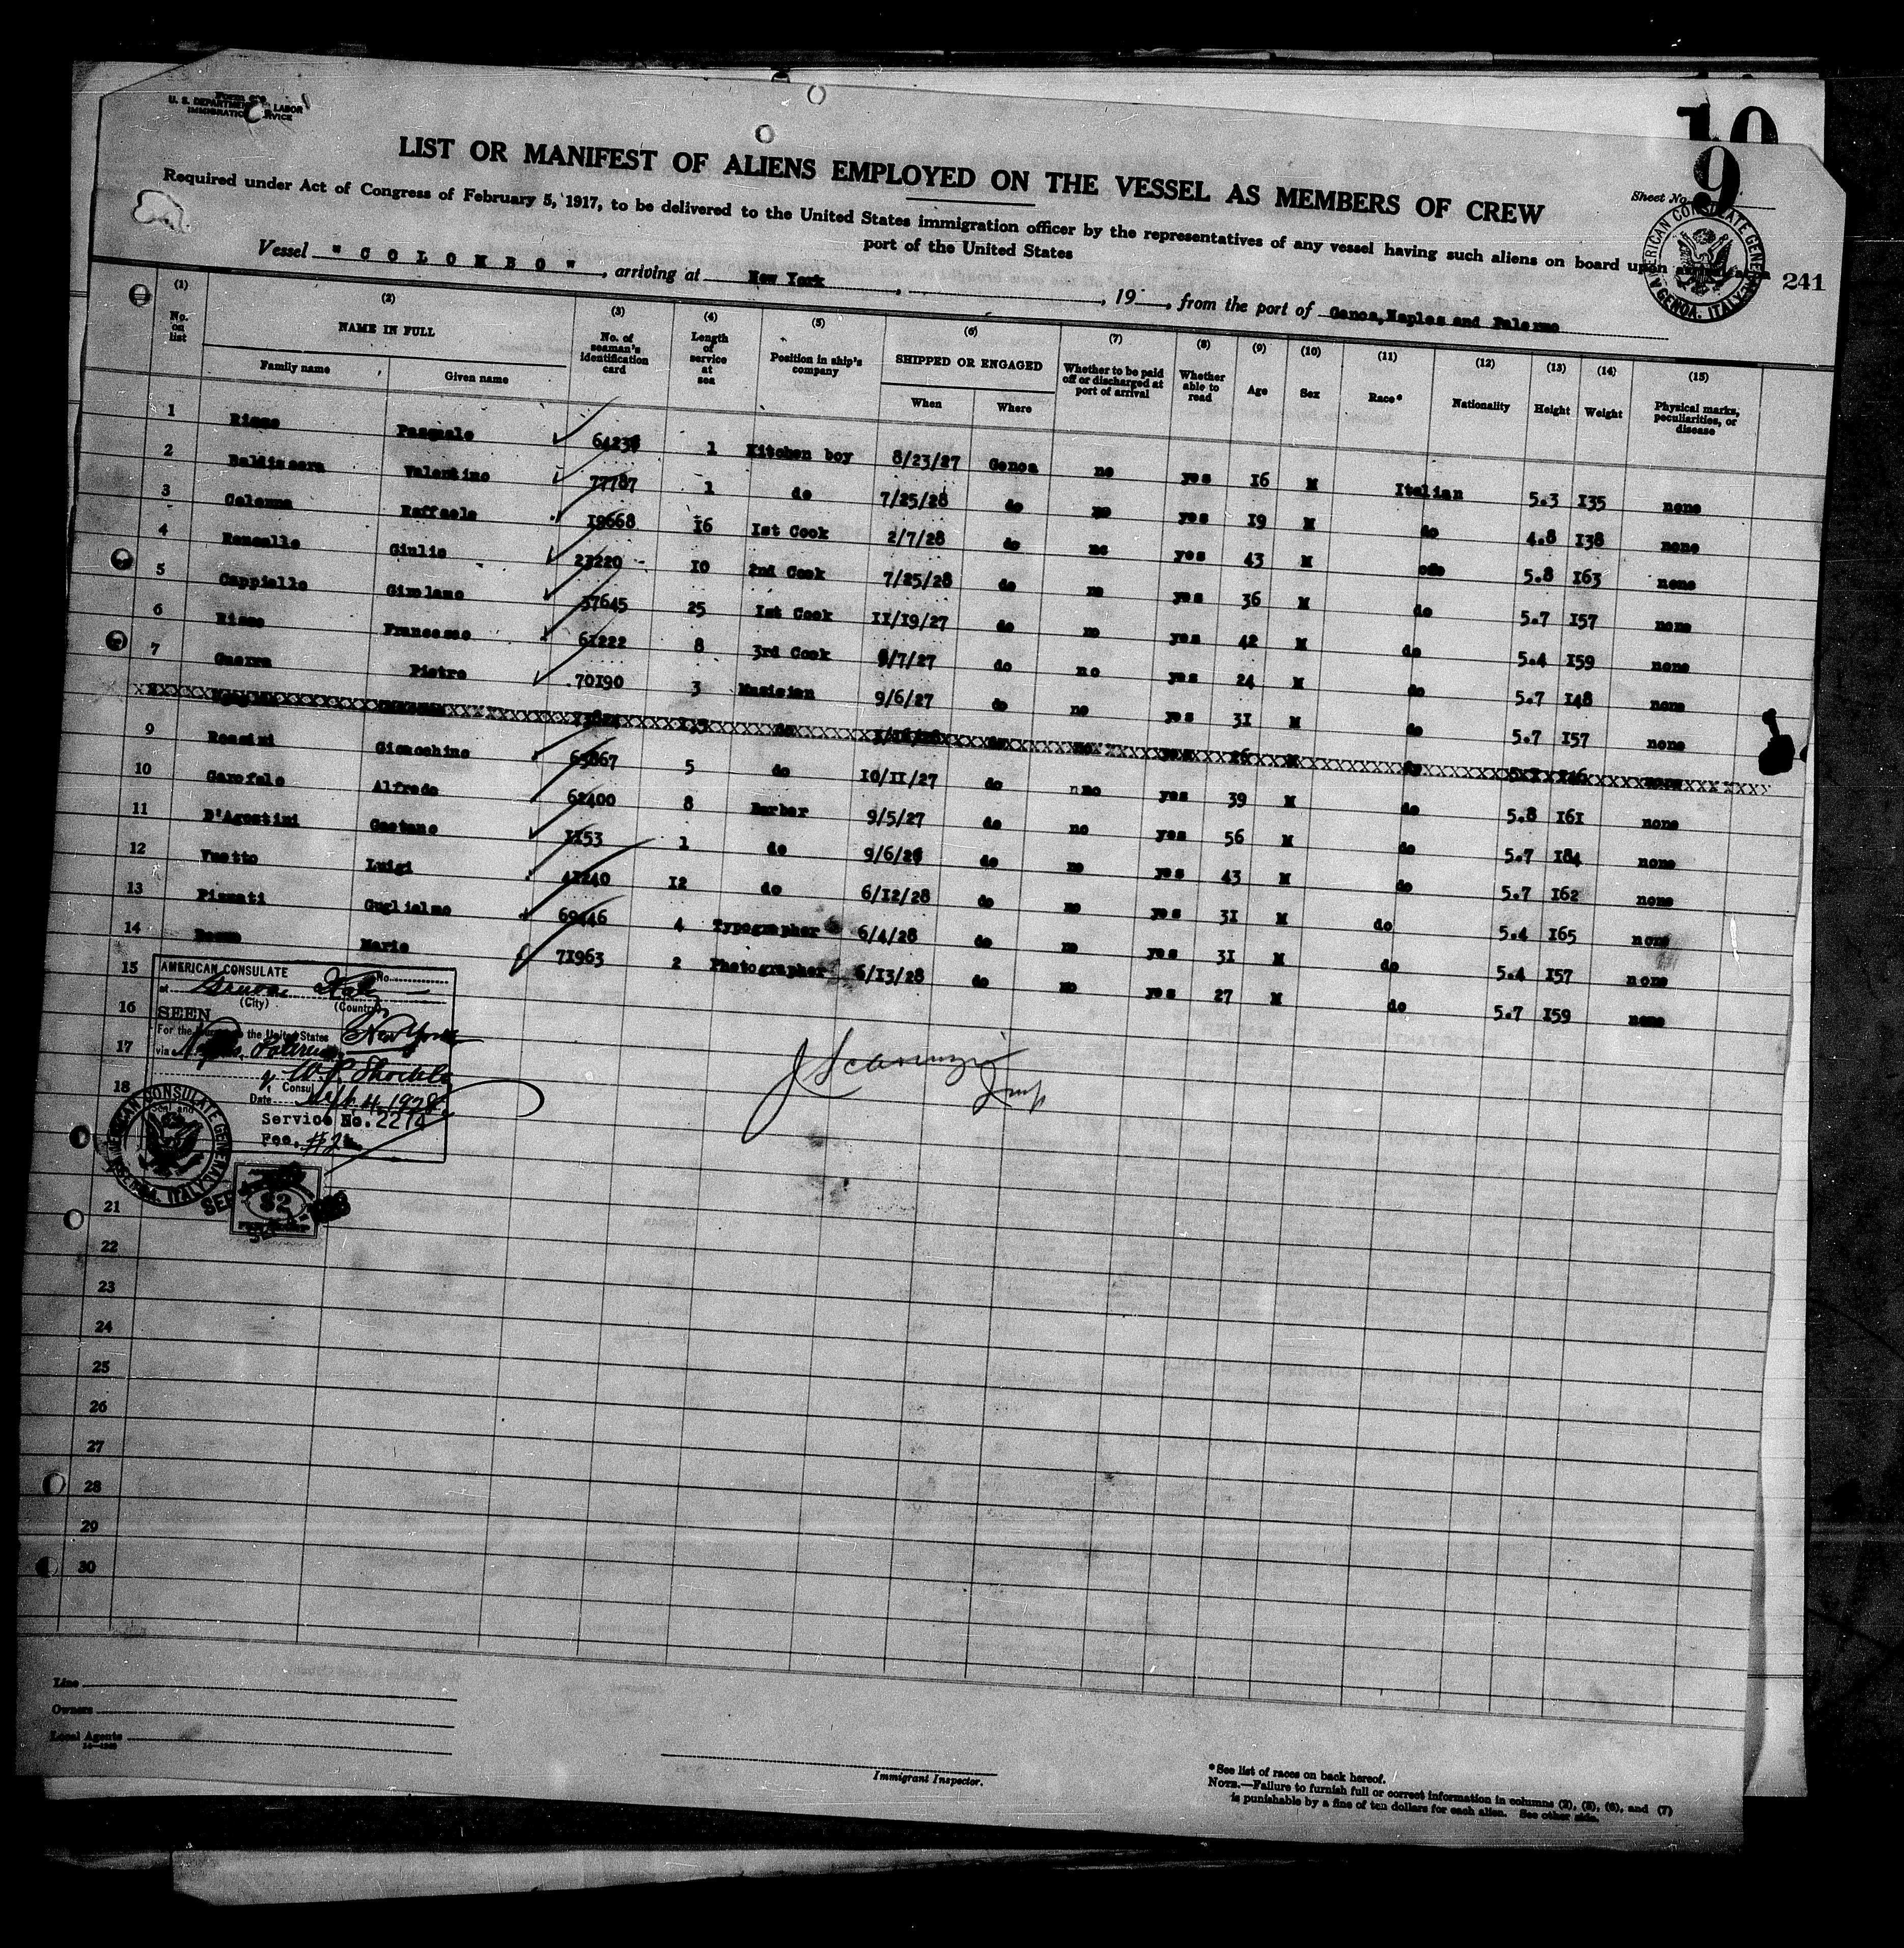 10
Form 689
U. S. DEPARTMENT OF LABOR
IMMIGRATION SERVICE
9
Sheet No.
LIST OR MANIFEST OF ALIENS EMPLOYED ON THE VESSEL AS MEMBERS OF CREW
Required under Act of Congress of February 5, 1917, to be delivered to the United States immigration officer by the representatives of any vessel having such aliens on board upon
port of the United States
AMERICAN CONSULATE GENERAL GENOA, ITALY
241
Vessel " C O L O M B O ", arriving at New York, , 19 , from the port of Genoa, Naples and Palermo
(1) (2) (3) (4) (5) (6) (7) (8) (9) (10) (11) (12) (13) (14) (15)
No. on list NAME IN FULL No. of seaman's identification card Length of service at sea Position in ship's company SHIPPED OR ENGAGED Whether to be paid off or discharged at port of arrival Whether able to read Age Sex Race* Nationality Height Weight Physical marks, peculiarities, or disease
Family name Given name When Where
1 Risso Pasquale 64238 1 Kitchen boy 8/23/27 Genoa no yes 16 M Italian 5.3 135 none
2 Baldissera Valentino 77787 1 do 7/25/28 do no yes 19 M do 4.8 138 none
3 Colonna Raffaele 19668 16 1st Cook 2/7/28 do no yes 43 M do 5.8 163 none
4 Roncallo Giulio 23220 10 2nd Cook 7/25/28 do no yes 36 M do 5.7 157 none
5 Cappiello Girolamo 37645 25 1st Cook 11/19/27 do no yes 42 M do 5.4 159 none
6 Risso Francesco 61222 8 3rd Cook /7/27 do no yes 24 M do 5.7 148 none
7 Guerra Pietro 70190 3 Musician 9/6/27 do no yes 31 M do 5.7 157 none
9 Rossini Gioacchino 65067 5 do 10/11/27 do no yes 39 M do 5.8 161 none
10 Garofalo Alfredo 62400 8 Barber 9/5/27 do no yes 56 M do 5.7 184 none
11 D'Agostini Gaetano 1153 1 do 9/6/26 do no yes 43 M do 5.7 162 none
12 Vuotto Luigi 41240 12 do 6/12/28 do no yes 31 M do 5.4 165 none
13 Pismati Guglielmo 69446 4 Typographer 6/4/28 do no yes 31 M do 5.4 157 none
14 Mario 71963 2 Photographer 6/13/28 do no yes 27 M do 5.7 159 none
15
16
17
18
AMERICAN CONSULATE No.
at Genoa Italy
(City) (Country)
SEEN
For the the United States New York
via Naples, Palermo
Consul
Date Sept. 4, 1928
Service No. 2274
Fee. $2
AMERICAN CONSULATE GENERAL GENOA, ITALY
$2
21
22
23
24
25
26
27
28
29
30
Line
Owners
Local Agents
Immigrant Inspector.
*See list of races on back hereof.
NOTE.—Failure to furnish full or correct information in columns (2), (5), (6), and (7)
is punishable by a fine of ten dollars for each alien. See other side.